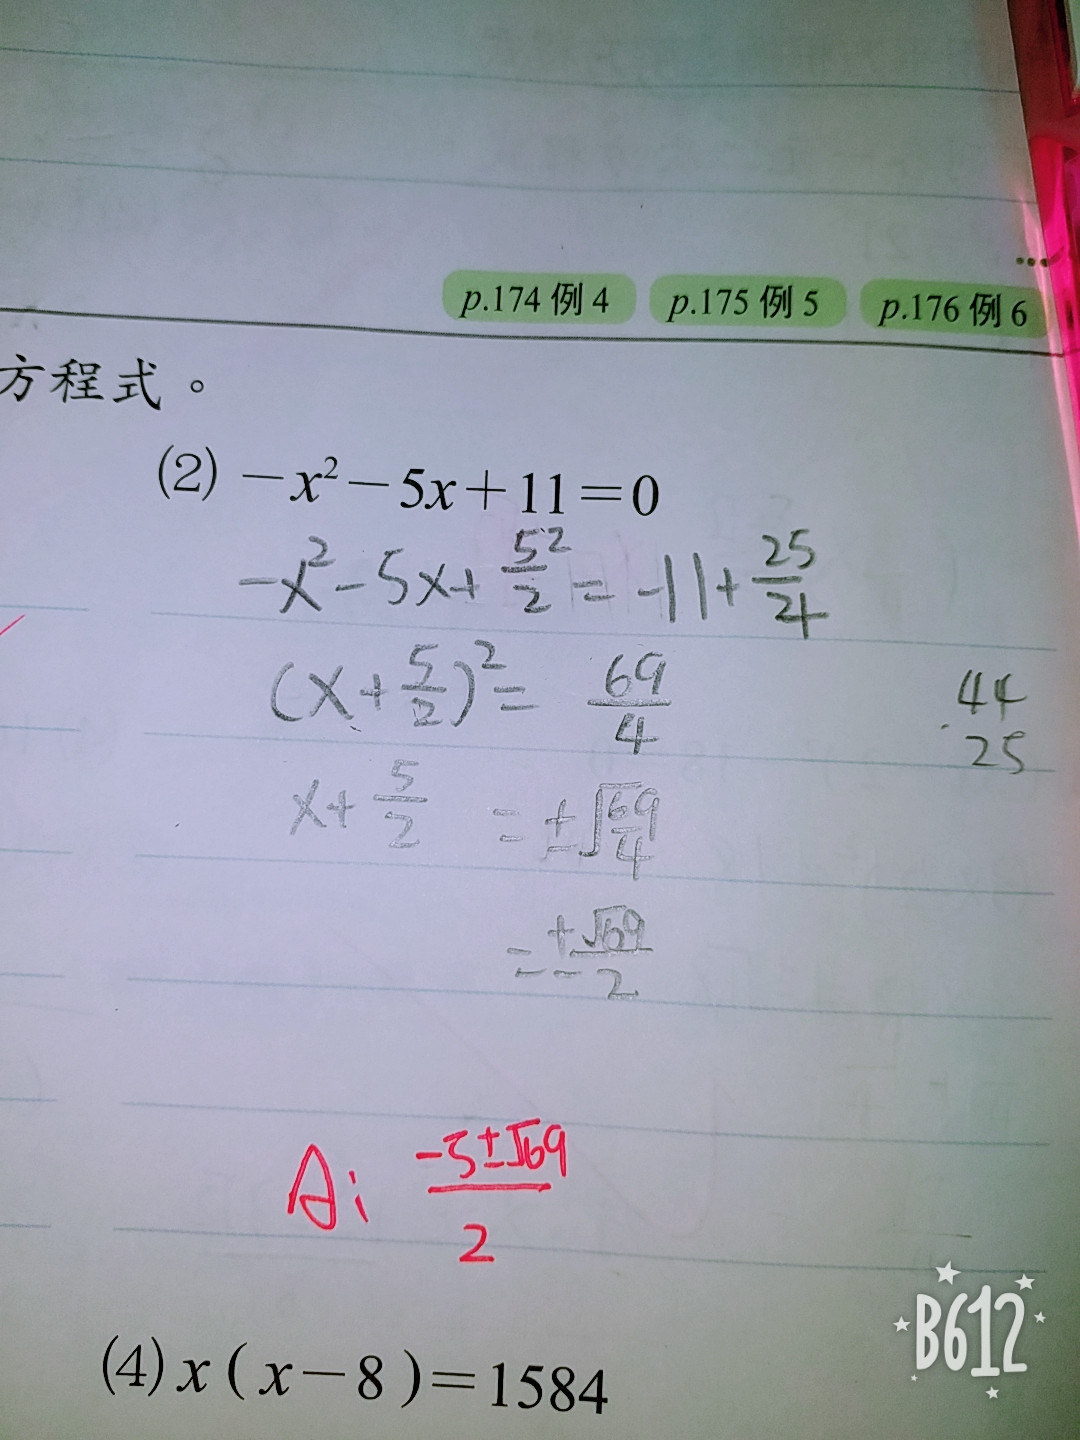 p.174 例 4 p.175 例 5 p.176 例 6
方程式。
(2) －x²－5x＋11＝0
-x²-5x+5/2²=-11+25/4
(x+5/2)²=69/4
44
25
x+5/2 =±√69/4
=±√69/2
A: -5±√69/2
(4) x(x－8)＝1584
B612